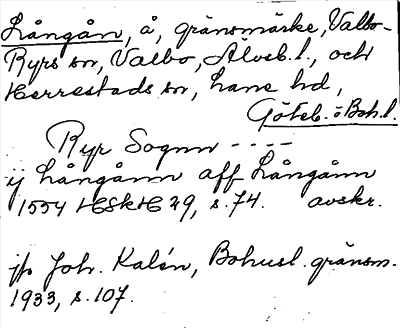 Långån, å, gränsmärke, Valbo-
Ryrs sn, Valbo, Älvsb. l., och
Herrestads sn, Lane hd,
Göteb. o Boh. l.
Ryr Sognn ----
ij Långånn aff Långånn
1554 HSkH 29, s. 74. avskr.
jfr Joh. Kalén, Bohusl. gränsm.
1933, s. 107.